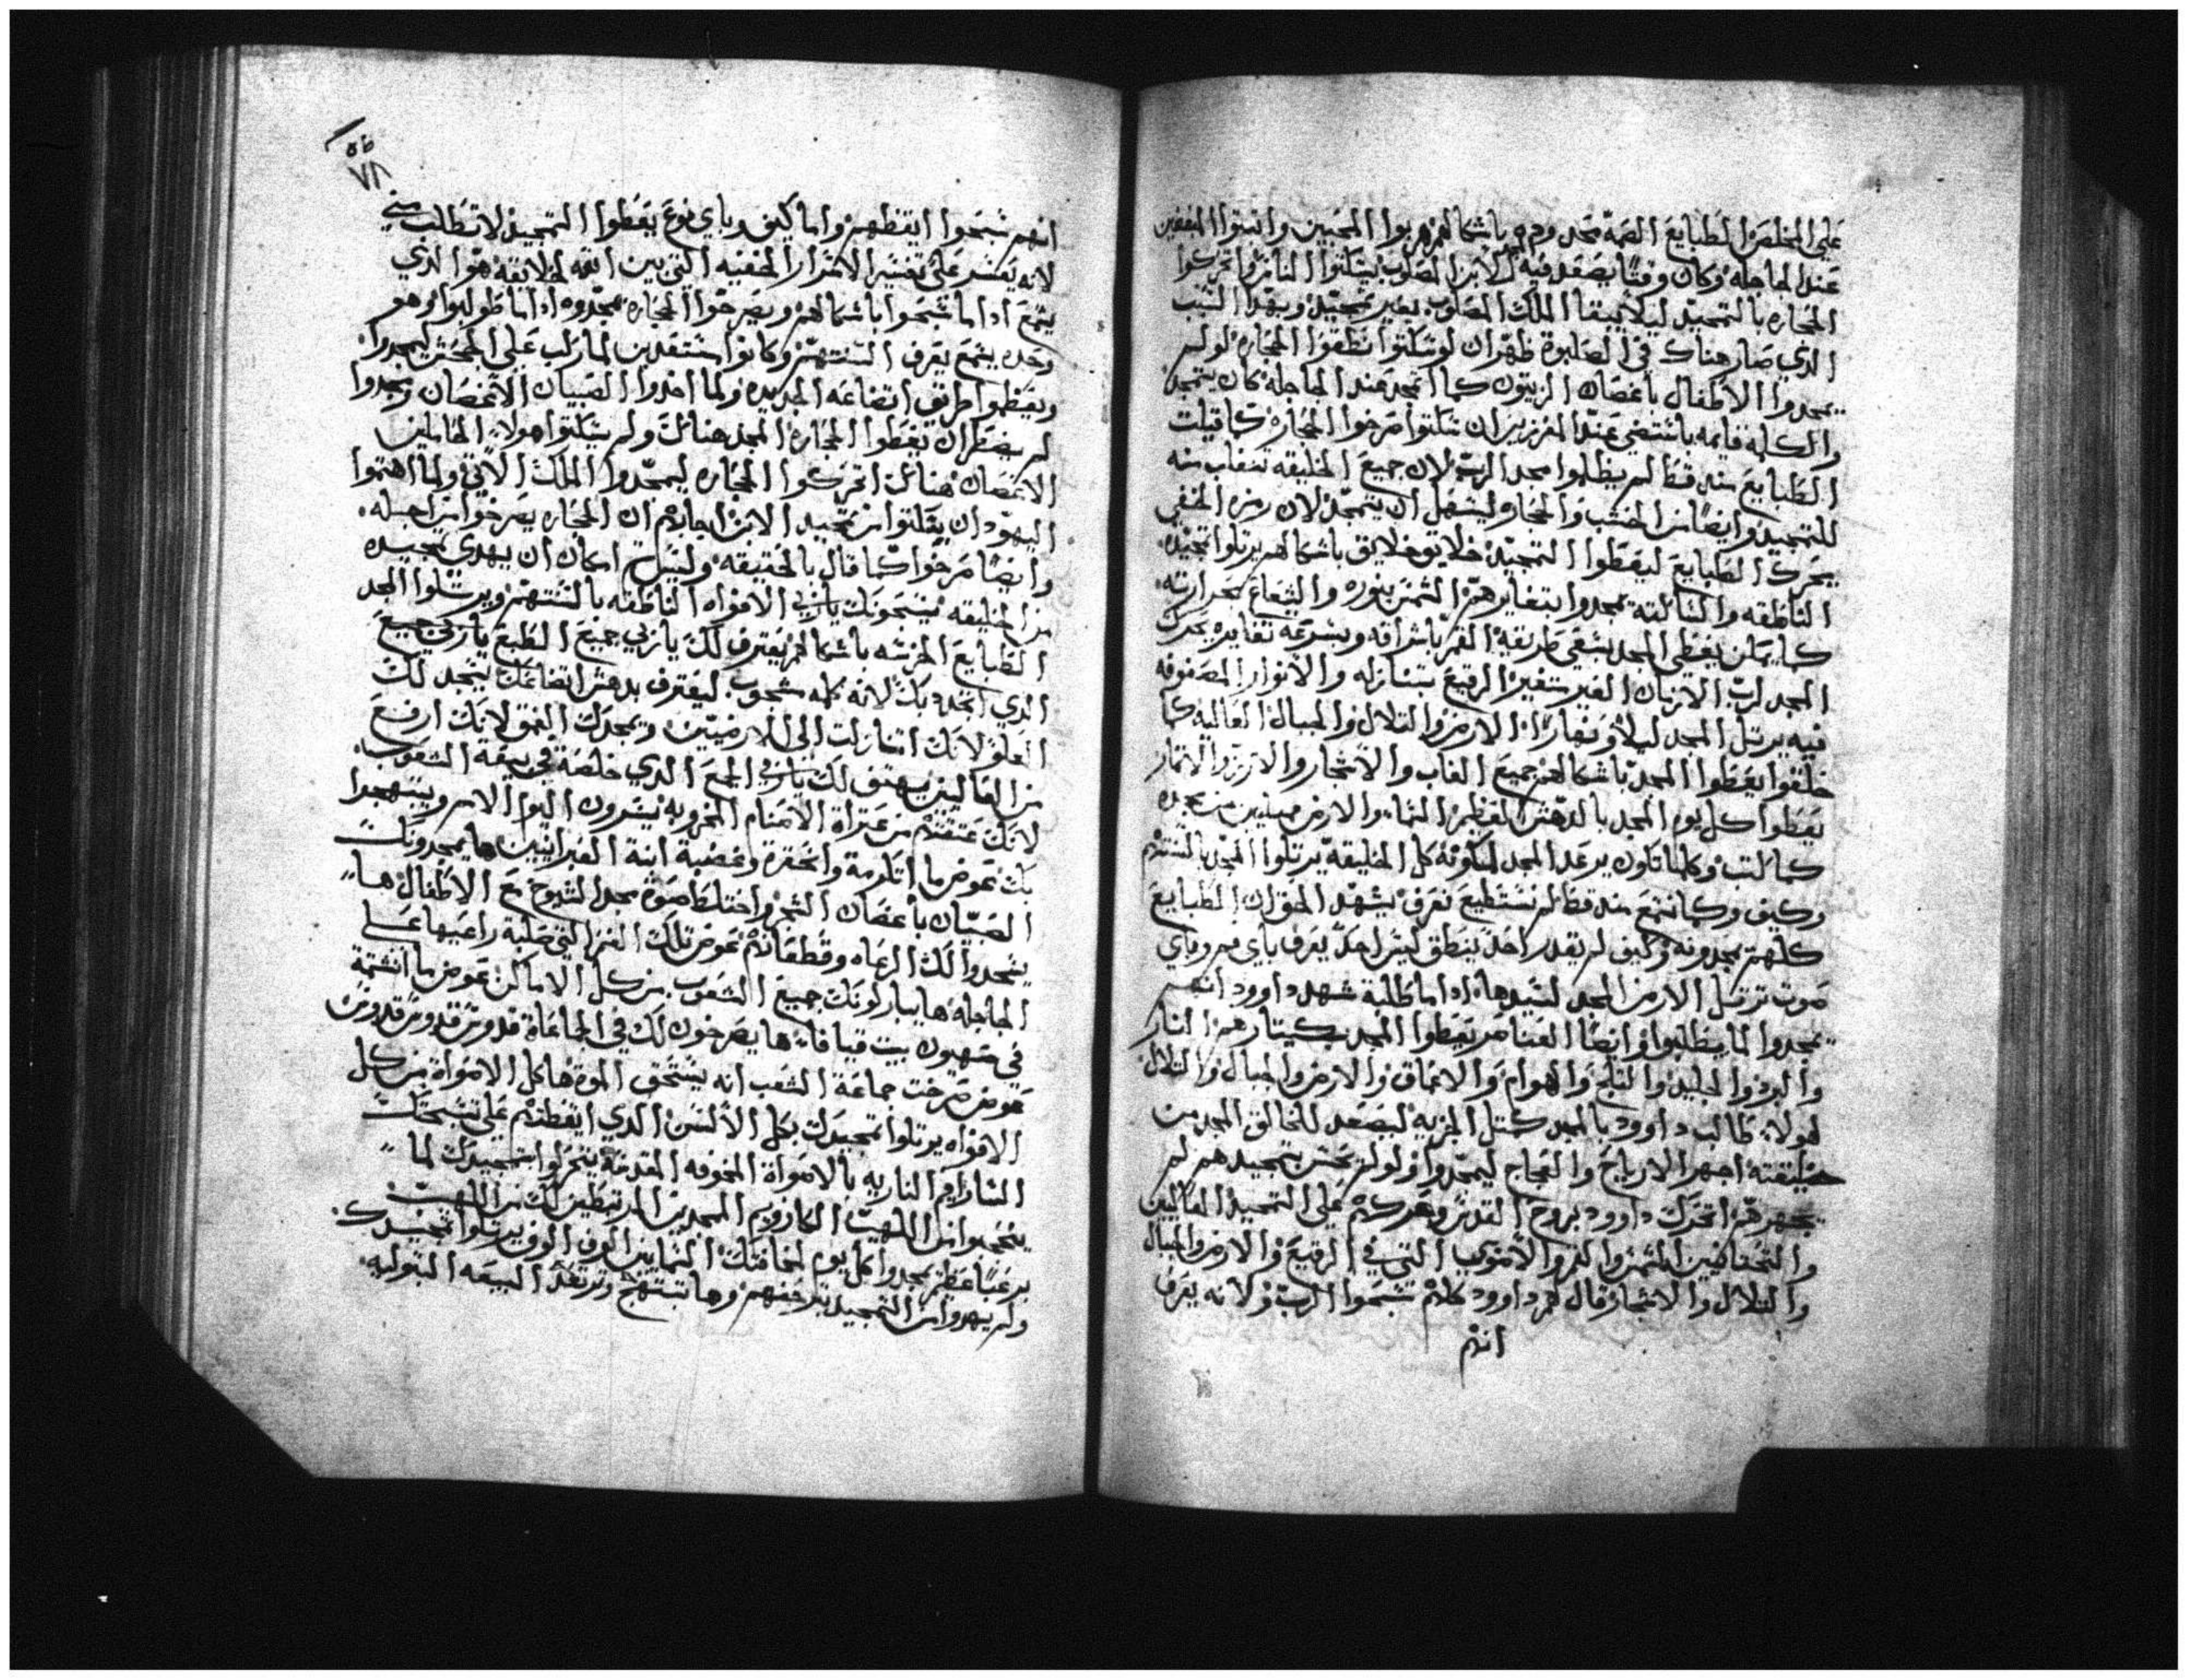 على المخلص الطبايع الصمة تمجدوه باشكالهم هربوا المحبين وانبتوا المبغضين
عند الجاجلة وكان وقتًا يصعد فيه الابن المصلوب بيسكتوا الناس اتحركوا
الحجاره بالتمجيد ليلا يبقا الملك المصلوب بغير تمجيد وبهذا السبب
الذي صار هناك في الصلبوة ظهر ان لو سكتوا نطقوا الحجاره لو لم
يمجدوا الاطفال باغصان الزيتون كما اتمجد عند الجاجله كان يتمجد
والكلمه قايمه
الطبايع منه قط لم يبطلوا مجد الرب لان جميع الخليقه منه
للتمجيد وايضًا من الخشب والحجاره ليسهل ان يتمجد لان رمزه الخفي
يحرك الطبايع ليعطوا التمجيد خلايق خلايق باشكالهم يرتلوا تمجيده
الناطقه والساكته يمجدوا بتغايرهم الشمس بنوره والشعاع بحرارته
كما يمكن يعطي المجد طريقة القمر باشراقه وبسرعه تغايره يحرك
المجد لرب الازمان الغير متغير الرقيع بمنازله والانوار المصفوفه
فيه يرتل المجد ليلا ونهارًا الارض والتلال والجبال العاليه كما
خلقوا يعطوا المجد باشكالهم جميع الغاب والاشجار والارز والاثمار
يعطوا كل يوم المجد بالدهش العظيم السماء والارض مملين من مجده
كما كتب وكلما تكون يرعد المجد كل الخليقة يرتلوا المجد
وكيف وكما نسمع منه قط لم نستطيع نعرف يشهد الحق ان الطبايع
كلهم يمجدونه وكيف لم يقدر احد ينطق ليس احد يعرف باي فم وباي
صوت ترتل الارض المجد لسيدها اذا ما طلبة شهد داوود انهم
يمجدوا لما يطلبوا وايضًا العناصر يعطوا المجد بكيتارهم النار
والبرد والجليد والثلج والهوام والاعماق والارض والجبال والتلال
لهولاء طالب داوود بالمجد كمثل الجزيه ليصعد للخالق المجد من
خليقته اجهر الارياح والعجاج ليمجدوا ولو لم يحس بتمجيدهم لم
يجهرهم اتحرك داوود بروح القدس وحركهم على التمجيد العاليين
والتحتانيين الشمس والقمر والامويه التي في الرقيع والارض والجبال
والتلال والاشجار قال لهم داوود كلكم سبحوا الرب ولانه يعرف
انهم
٧٨
انهم سبحوا ايقظهم واما كيف وباي نوع يعطوا التمجيد لا تطلب مني
لانه يعسر علي تفسير الاسرار الخفيه التي بين الله لخلايقه هو الذي
يسمع اذا ما سبحوا باشكالهم ويصرخوا الحجاره تمجدوه اذا ما طولبوا وهو
وحده يسمع يعرف السنتهم وكانوا مستعدين لما ركب على الجحش ليمجدوا
ويعظموا طريق اتضاعه الجديده ولما اخدوا الصبيان الاغصان ومجدوا
لم يضطر ان يعطوا الحجاره المجد هنالك ولم يسكتوا هولاء الحاملين
الاغصان هنالك اتحركوا الحجاره ليمجدوا الملك الاتي ولما اهتموا
اليهود ان يسكتوا من تمجيد الابن اجابهم ان الحجاره يصرخوا من اجله
وايضًا صرخوا كما قال بالحقيقه وليس امكان ان يهدى تمجيده
من الخليقه يسبحونك يا ربي الافواه الناطقه بالسنتهم ويرسلوا المجد
الطبايع الخرسه باشكالهم يعترف لك يا ربي جميع الطبع يا ربي جميع
الذي اتحد بك لانه كله شجوب ليعترف بدهش اتضاعك ليمجد لك
العلو لانك اتنازلت الى الارضيين ويمجدك العمق لانك ارفع
من العاليين يهتف لك يا ربي الجمع الذي خلصة في بيعة الشعوب
لانك عتقتهم من عتراة الاصنام المخزويه يسرون اليوا الامم ويبتهجوا
بك عوض ما اتلومة واتحقرة وغضبة ابنة العبرانيين ها يمجدونك
الصبيان باغصان الشجر واختلط صوة مجد الشيوخ مع الاطفال ها
يسجدوا لك الرعاه وقطعانهم عوض تلك الغنم التي صلبة راعيها على
الجاجلة ها يباركونك جميع الشعوب من كل الاماكن عوض ما انشتمة
في صهيون بيت قيافاء ها يصرخون لك في الجماعاة قدوس قدوس قدوس
عوض صرخت جماعة الشعب انه يستحق الموة ها كل الاصواة من كل
الافواه يرتلوا تمجيدك بكل الالسن الذي ايقظتهم على تسبحتك
السارافيم الناريه بالاصواة المخوفه المقدسة يتحركوا بتمجيدك لما
يسجدوا من اللهيب الكاروبيم الممجدين المرتبطين لك من اللهيب
برعبًا عظيم يمجدوا كل يوم لمخافتك السمايين الوف الوف يرتلوا تمجيدك
ولم يهدوا من التمجيد بترجيفهم وها تبتهج وترتعد البيعه البتوليه